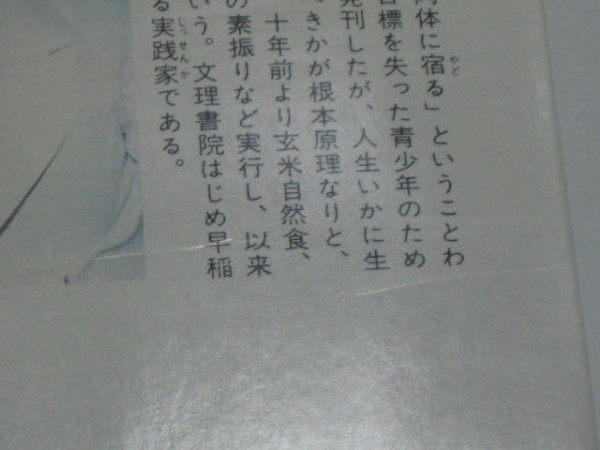 体に宿る」ということわ
目標を失った青少年のため
発刊したが、人生いかに生
べきかが根本原理なりと、
十年前より玄米自然食、
の素振りなど実行し、以来
いう。文理書院はじめ早稲
る実践家である。
やど
じっせんか